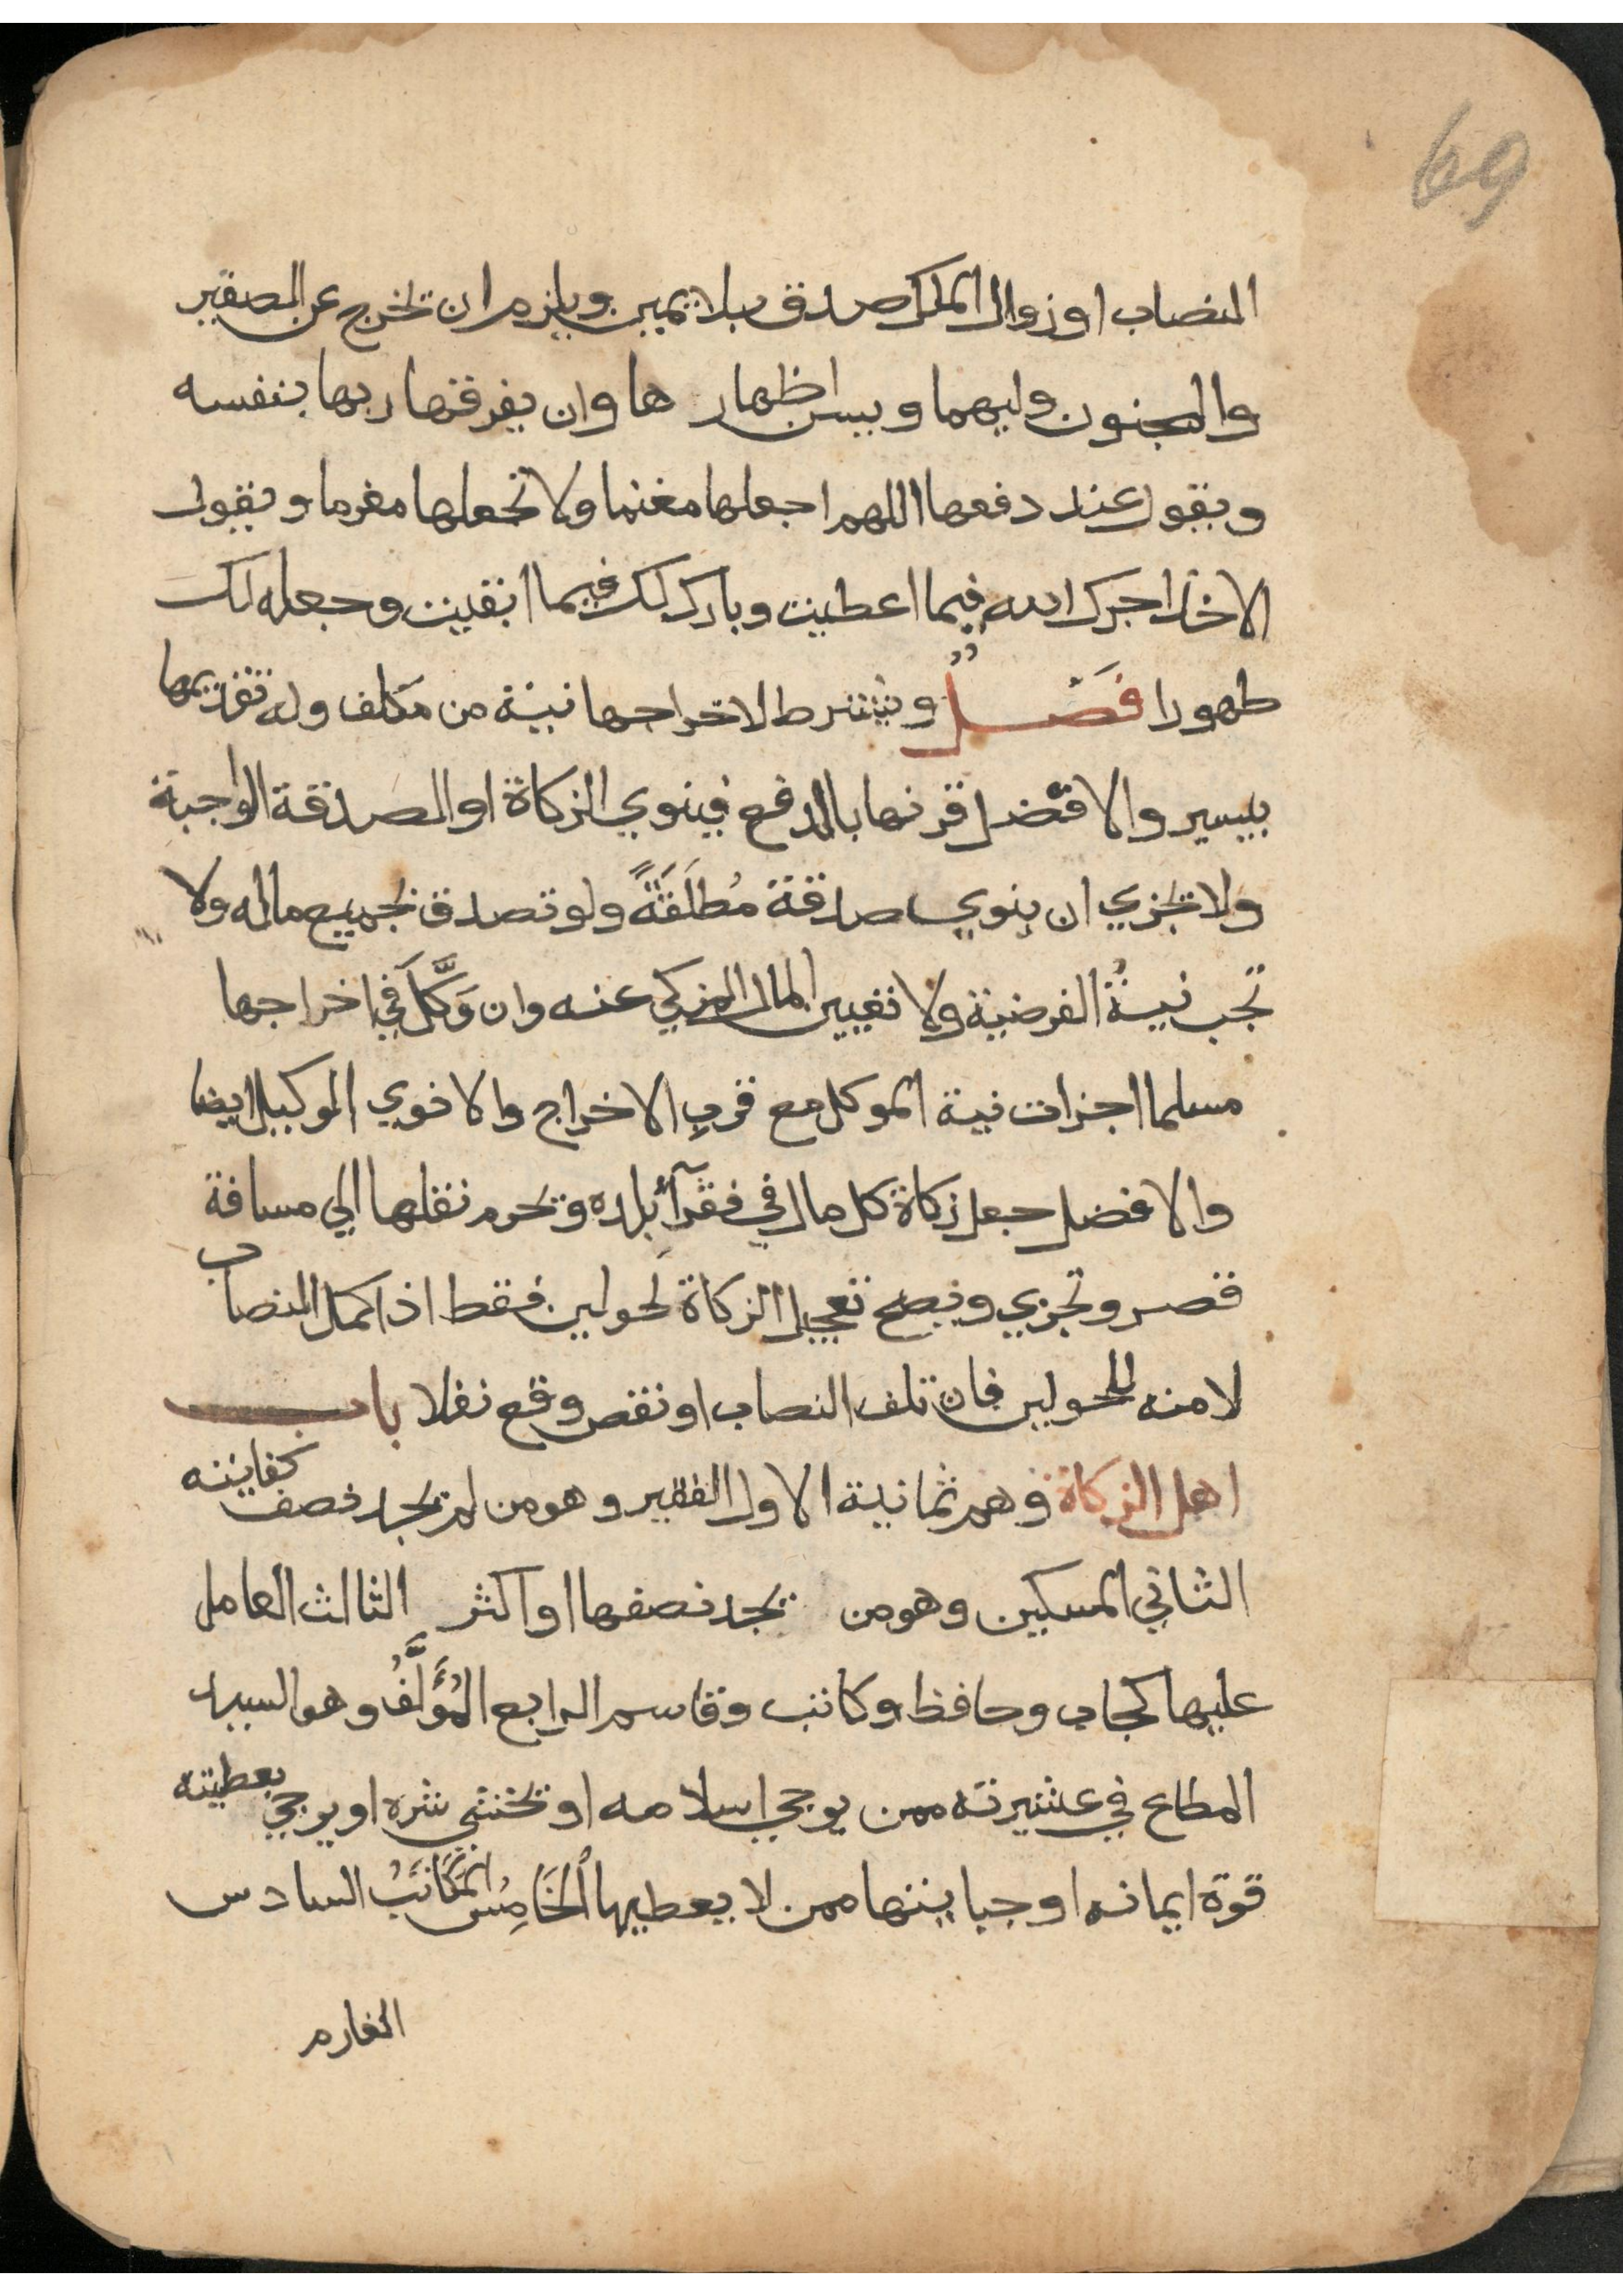 69
النصاب او زوال الملك صدق بلا يمين ويلزم ان تخرج عن الصغير
والمجنون وليهما ويسن اظهار ها وان يفرقها ربها بنفسه
ويقول عند دفعها اللهم اجعلها مغنما ولا تجعلها مغرما ويقول
الاخذ اجرك الله فيما اعطيت وبارك لك فيما ابقيت وجعله لك
طهورا فَصْلٌ ويشترط لاخراجها نية من مكلف وله تقديمها
بيسير والافضل قرنها بالدفع فينوي الزكاة او الصدقة الواجبة
ولا تجزي ان ينوي صدقة مُطلَقَةً ولو تصدق بجميع ماله ولا
تجب نيةُ الفرضية ولا تعيين المال المزكي عنه وان وَكَّلَ في اخراجها
مسلما اجزات نية الموكل مع قربِ الاخراج والا نوي الوكيل ايضا
والافضل جعل زكاة كل مال في فقرآء بلده وتحرم نقلها الي مسافة
قصر وتجزي ويصح تعجيل الزكاة لحولين فقط اذا كمل النصاب
لا منه للحولين فان تلف النصاب او نقص وقع نفلا باب
اهل الزكاة وهم ثمانية الاول الفقير وهو من لم يجد نصف كفايته
الثاني المسكين وهو من يجد نصفها او اكثر الثالث العامل
عليها كجاب وحافظ وكاتب وقاسم الرابع المُؤَلَّفُ وهو السيد
المطاع في عشيرته ممن يرجي اسلامه او تخشي شره او يرجي بعطيته
قوة ايمانه او جبايتها ممن لا يعطيها الخَامِسُ المكَاتَبُ السادس
الغارم